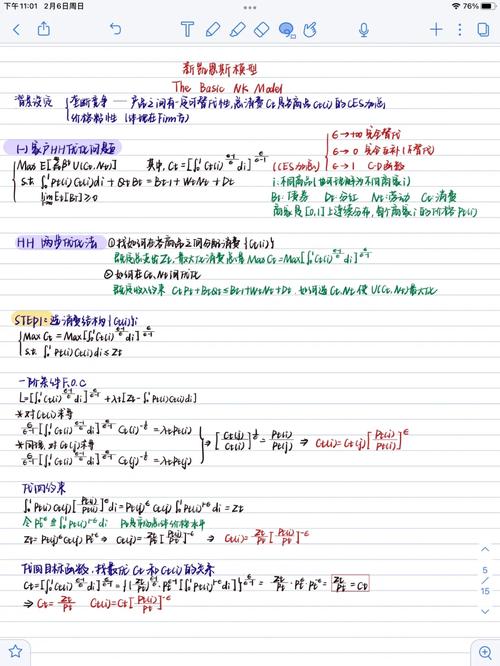 下午11:01 2月6日周日
76%
新凯恩斯模型
The Basic NK Model
背景设定 { 垄断竞争 —— 产品之间有一定可替代性,总消费Ct是各商品Ct(i)的CES加总
价格黏性 (体现在Firm方)
(一) 家户HH优化问题
Max E[∑β^t U(Ct,Nt)] 其中, Ct=[∫₀¹Ct(i)^{(ε-1)/ε}di]^{ε/(ε-1)} (CES加总)
s.t. ∫₀¹Pt(i)Ct(i)di+QtBt=Bt-1+WtNt+Dt
lim Et[Bt]≥0
ε→+∞ 完全替代
ε→0 完全互补(不替代)
ε→1 C-D函数
i:不同商品
Bt:债券 Dt:分红 Nt:劳动 Ct:消费
商家是[0,1]上连续分布,每个商家i的价格Pt(i)
HH 两步优化法 ①找如何在各商品之间分配消费{Ct(i)}
额度总支出Zt,最大化消费总量 Max Ct=Max[∫₀¹Ct(i)^{(ε-1)/ε}di]^{ε/(ε-1)}
②如何在Ct,Nt间优化
额度收入约束 CtPt+BtQt=Bt-1+WtNt+Dt,如何选Ct,Nt使U(Ct,Nt)最大化
STEP1:选消费结构{Ct(i)}i
Max Ct=Max[∫₀¹Ct(i)^{(ε-1)/ε}di]^{ε/(ε-1)}
s.t. ∫₀¹Pt(i)Ct(i)di≤Zt
一阶条件F.O.C
L=[∫₀¹Ct(i)^{(ε-1)/ε}di]^{ε/(ε-1)}+λt[Zt-∫₀¹Pt(i)Ct(i)di]
*对Ct(i)求导
[∫₀¹Ct(i)^{(ε-1)/ε}di] Ct(i)^{-1/ε}=λtPt(i)
*同理,对Ct(j)求导
[∫₀¹Ct(i)^{(ε-1)/ε}di] Ct(j)^{-1/ε}=λtPt(j)
⇒ [Ct(j)/Ct(i)]^{1/ε}=Pt(i)/Pt(j) ⇒ Ct(i)=Ct(j)[Pt(i)/Pt(j)]^{-ε}
代回约束
∫₀¹Pt(i)Ct(j)[Pt(i)/Pt(j)]^{-ε}di=Pt(j)^ε Ct(j)∫₀¹Pt(i)^{1-ε}di=Zt
令Pt^{1-ε}≡∫₀¹Pt(i)^{1-ε}di Pt是市场总体价格水平
Zt=Pt(j)^ε Ct(j) Pt^{1-ε} ⇒ Ct(j)=Zt/Pt[Pt(j)/Pt]^{-ε} ⇒ Ct(i)=Zt/Pt[Pt(i)/Pt]^{-ε}
代回目标函数,找最优Ct和Ct(i)的关系
Ct=[∫₀¹Ct(i)^{(ε-1)/ε}di]^{ε/(ε-1)} = Zt/Pt·Pt^ε·Pt^{-ε}=Zt/Pt=Ct
⇒ Ct=Zt/Pt Ct(i)=Ct[Pt(i)/Pt]^{-ε}
5
15